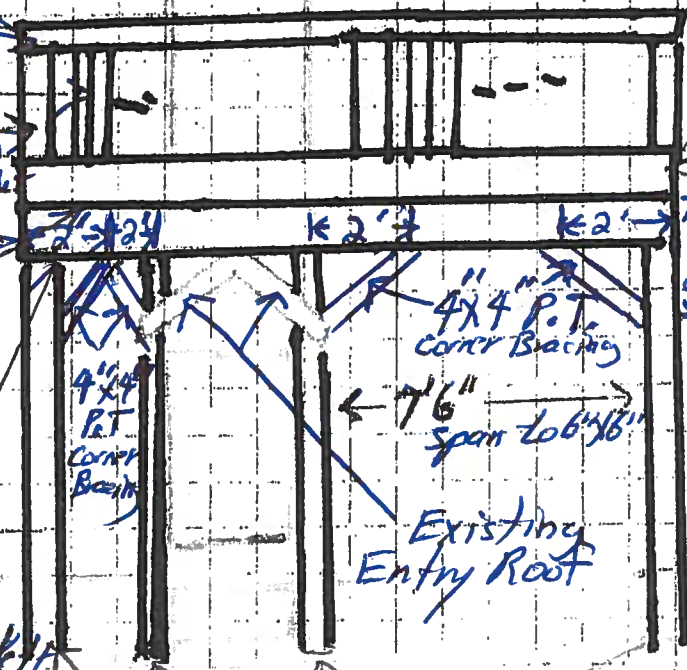 2' 2' 2' 2'
4"x4" P.T.
Corner Bracing
4"x4"
P.T
Corner
Bracing
7'6"
Span to 6"x6"
Existing
Entry Roof